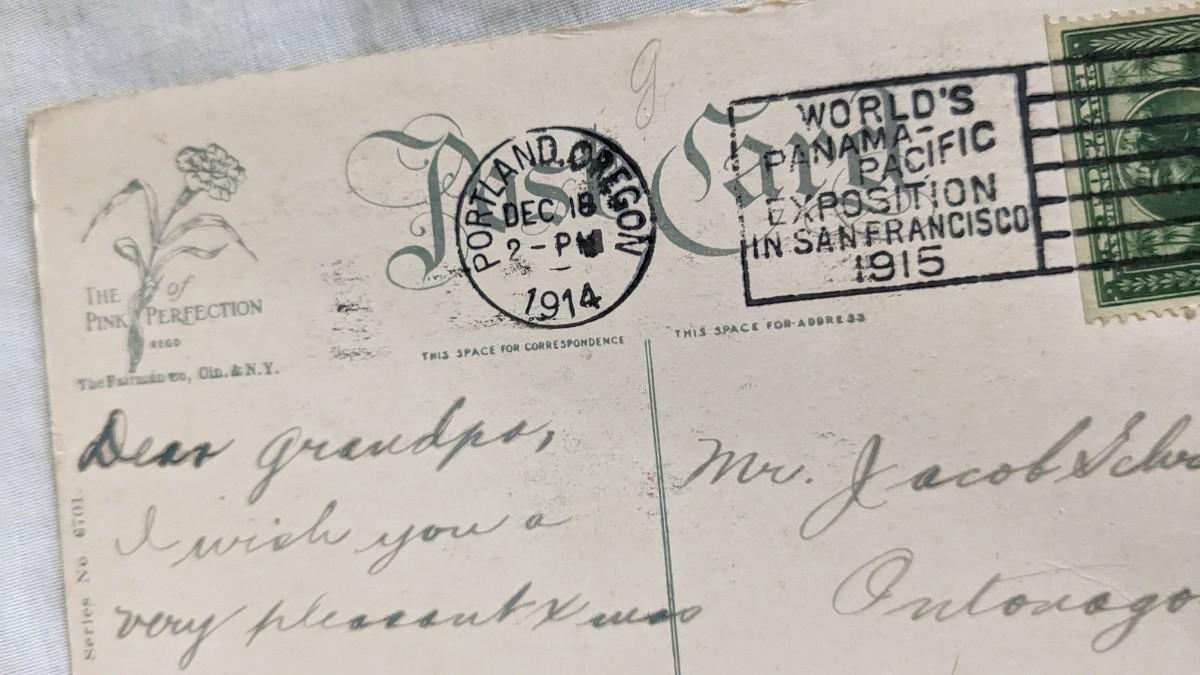 g
Post Card
PORTLAND, OREGON
DEC 18
2 - PM
1914
WORLD'S
PANAMA-
PACIFIC
EXPOSITION
IN SAN FRANCISCO
1915
THE of
PINK PERFECTION
REGD
The Fairman Co, Cin. & N.Y.
THIS SPACE FOR CORRESPONDENCE
THIS SPACE FOR ADDRESS
Dear Grandpa,
I wish you a
very pleasant Xmas
Mr. Jacob
Ontonago
Series No 6701